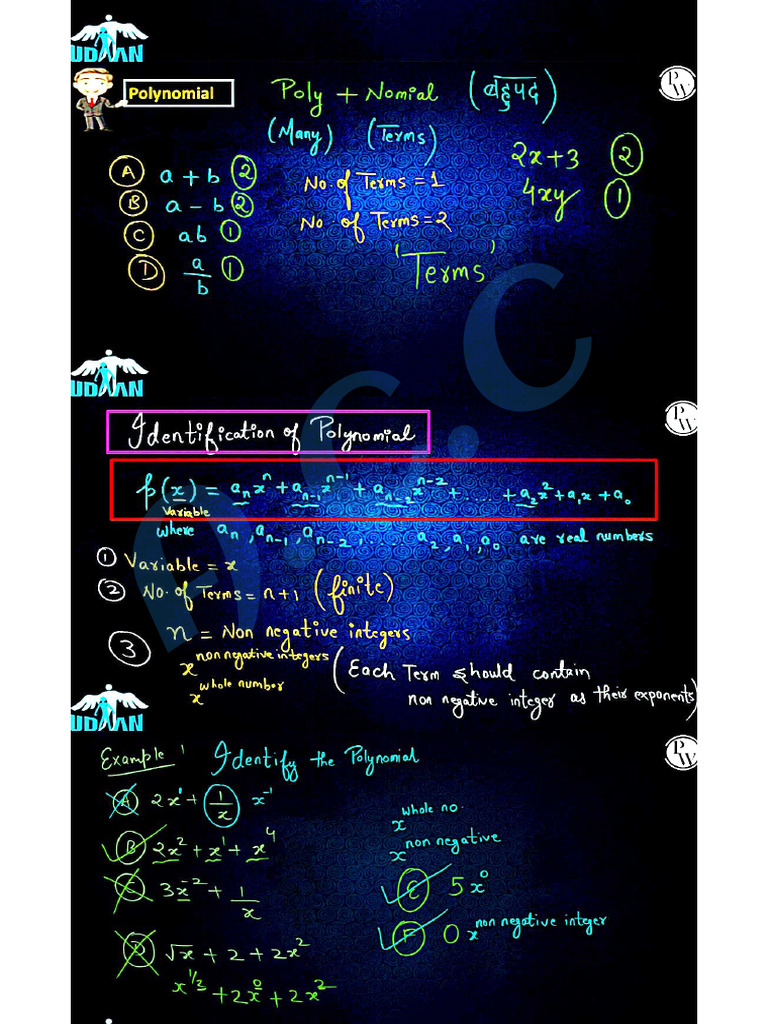 UDAAN
Polynomial
Poly + Nomial (बहुपद)
PW
(Many) (Terms)
2x+3 ②
4xy ①
Ⓐ a + b ②
Ⓑ a - b ②
Ⓒ ab ①
Ⓓ a/b ①
No. of Terms = 1
No. of Terms = 2
'Terms'
A.C.C
UDAAN
PW
Identification of Polynomial
p(x) = aₙxⁿ + aₙ₋₁xⁿ⁻¹ + aₙ₋₂xⁿ⁻² + ..... + a₂x² + a₁x + a₀
Variable
where aₙ, aₙ₋₁, aₙ₋₂, ... a₂, a₁, a₀ are real numbers
① Variable = x
② No. of Terms = n+1 (finite)
③ n = Non negative integers
x^non negative integers
x^whole number
(Each Term should contain
non negative integer as their exponents)
UDAAN
PW
Example ' Identify the Polynomial
Ⓐ 2x¹ + 1/x x⁻¹
Ⓑ 2x² + x¹ + x⁴
Ⓒ 3x⁻² + 1/x
Ⓓ √x + 2 + 2x²
x^1/2 + 2x⁰ + 2x²
x^whole no.
x^non negative
Ⓔ 5x⁰
Ⓕ 0x^non negative integer